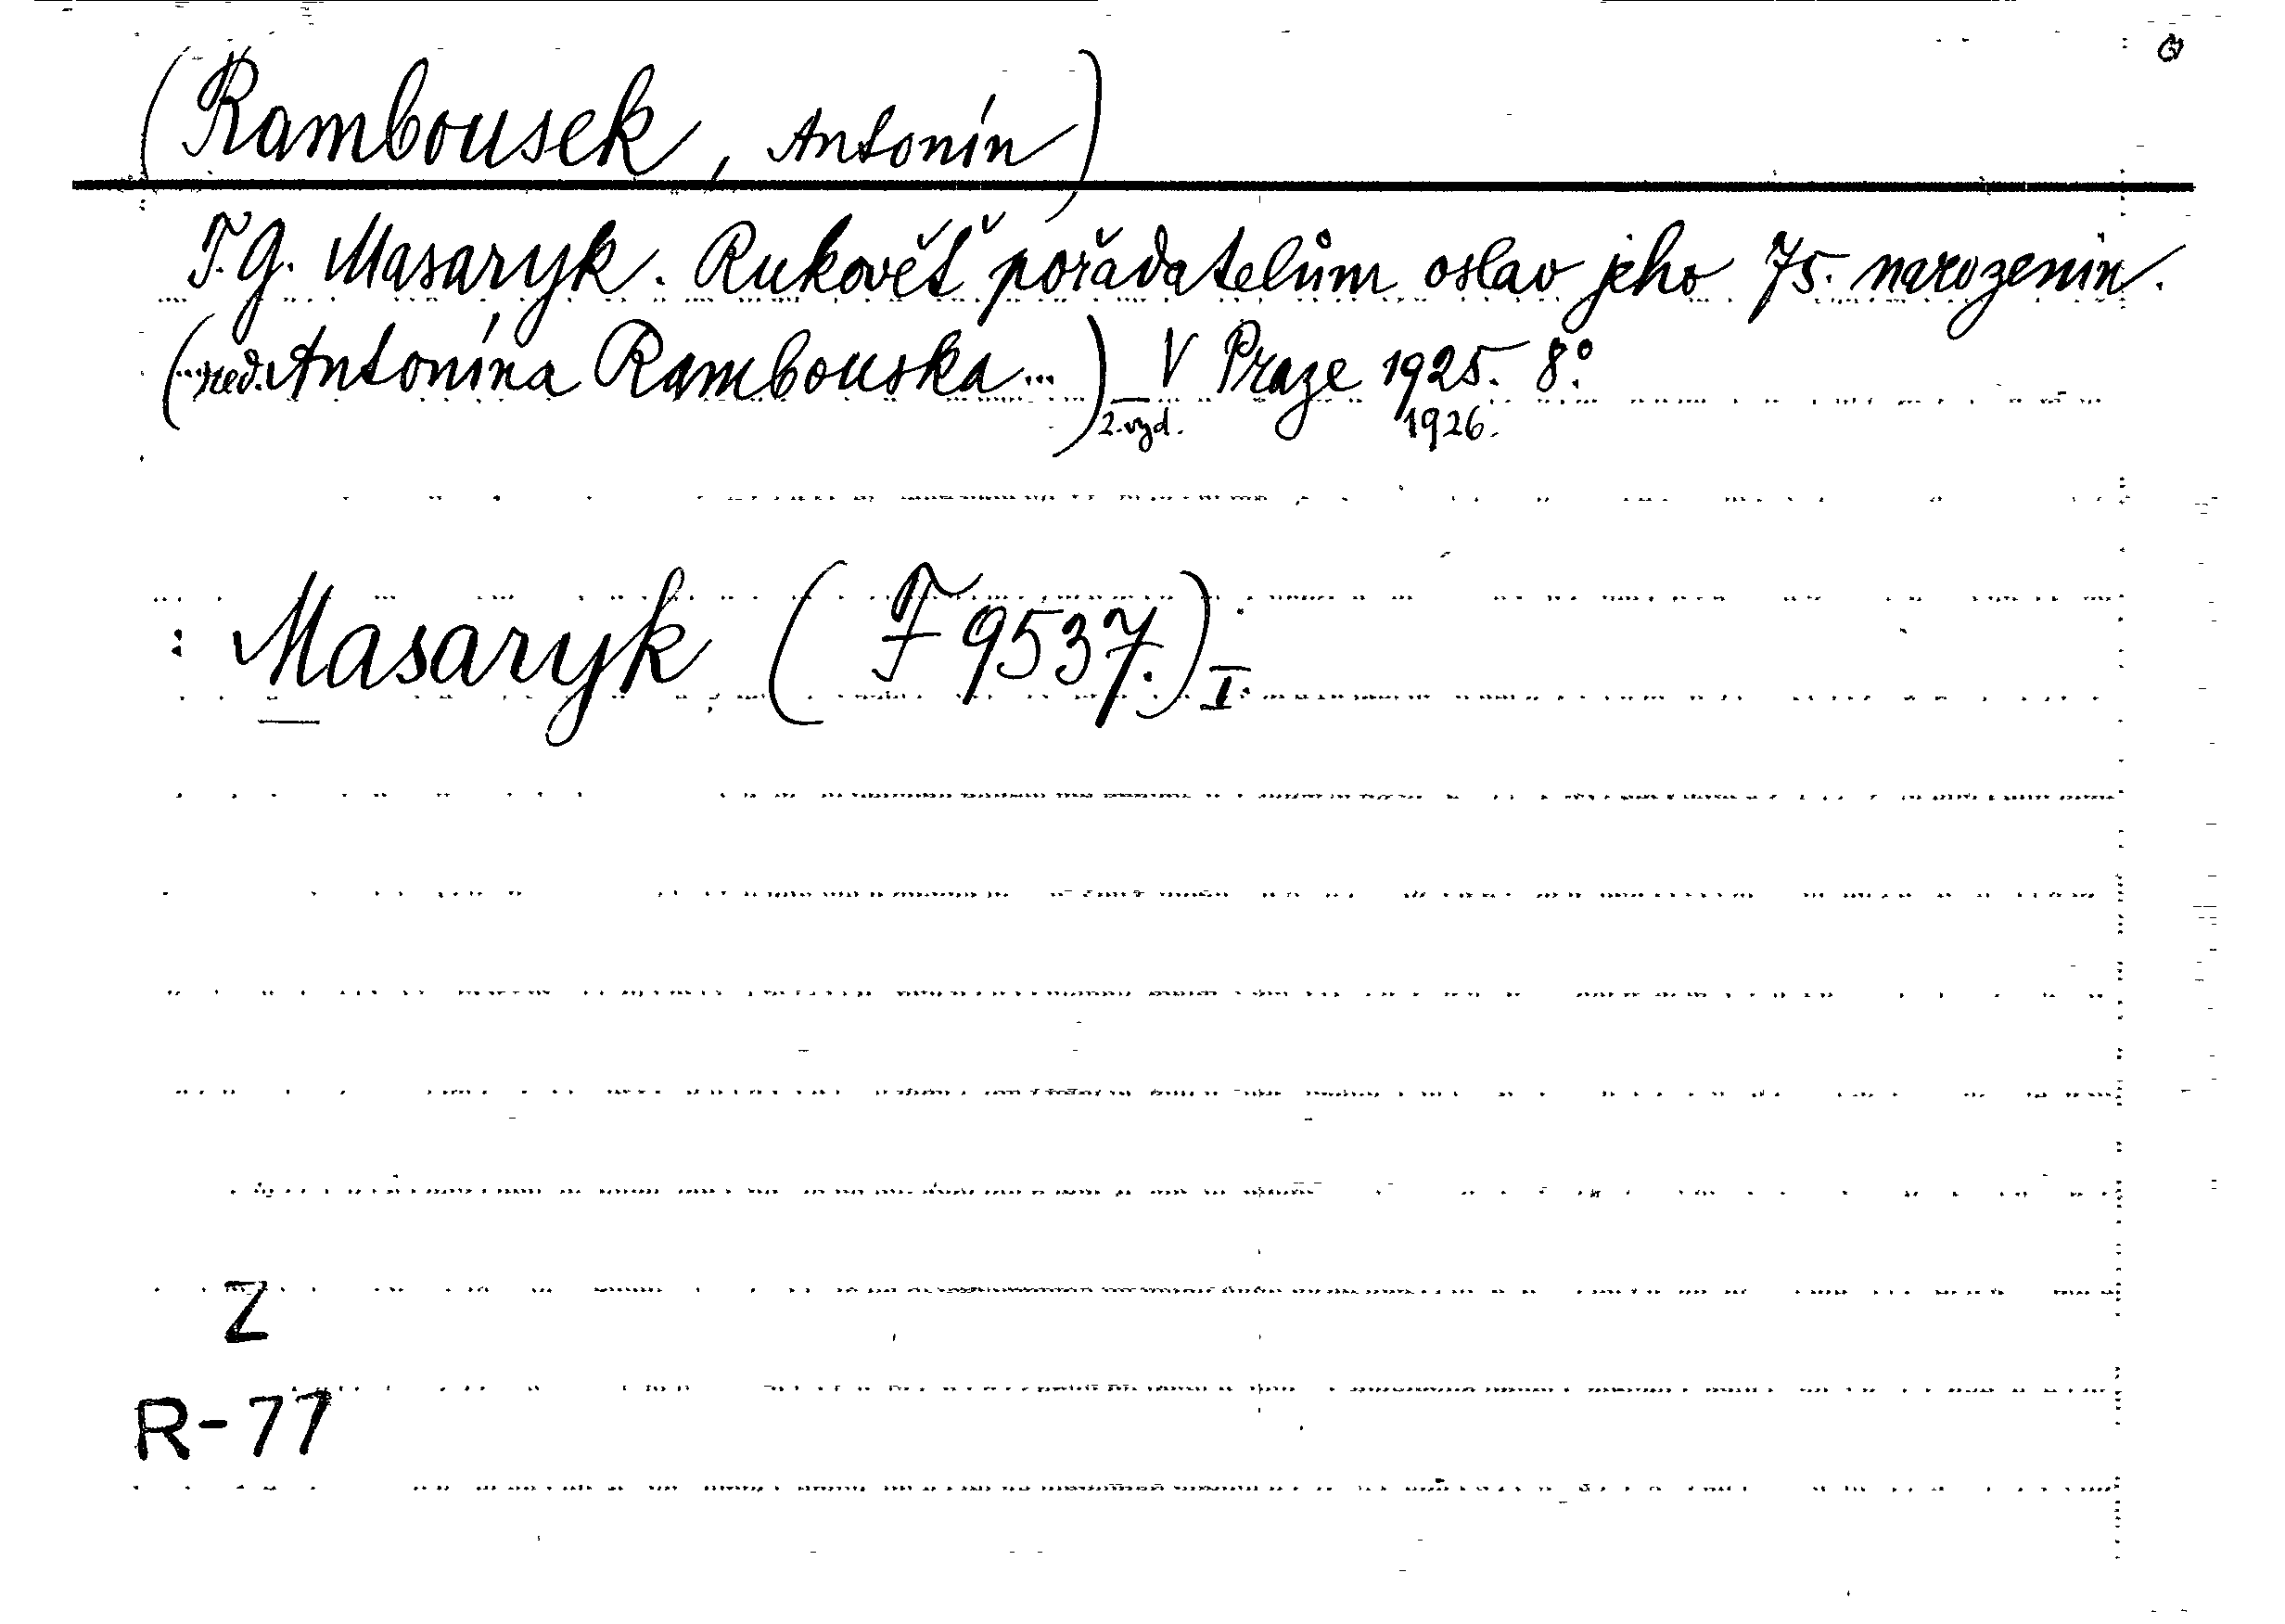 (Rambousek, Antonín)
T. G. Masaryk. Rukověť pořadatelům oslav jeho 75. narozenin.
(...red. Antonína Rambouska...) V Praze 1925. 8°.
2. vyd. 1926.
Masaryk (F 9537.) I.
Z
R-77